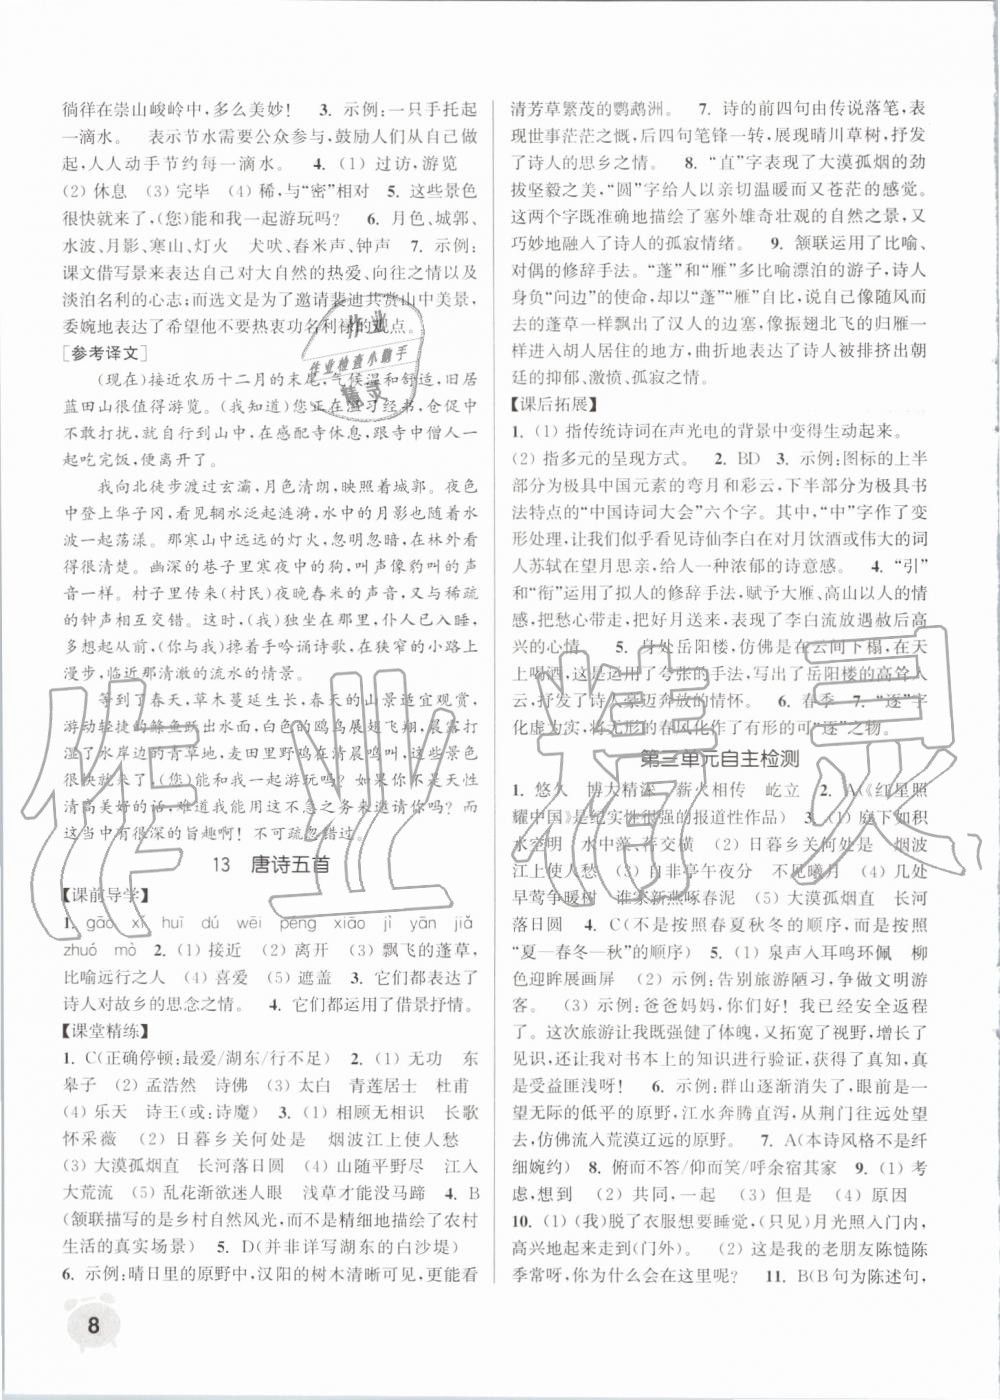 徜徉在崇山峻岭中,多么美妙!　3. 示例:一只手托起
一滴水。　表示节水需要公众参与,鼓励人们从自己做
起,人人动手节约每一滴水。　4. (1) 过访,游览
(2) 休息　(3) 完毕　(4) 稀,与“密”相对　5. 这些景色
很快就来了,(您)能和我一起游玩吗?　6. 月色、城郭、
水波、月影、寒山、灯火　犬吠、舂米声、钟声　7. 示例:
课文借写景来表达自己对大自然的热爱、向往之情以及
淡泊名利的心志;而选文是为了邀请裴迪共赏山中美景,
委婉地表达了希望他不要热衷功名利禄的观点。
[参考译文]
(现在)接近农历十二月的末尾,气候温和舒适,旧居
蓝田山很值得游览。(我知道)您正在温习经书,仓猝中
不敢打扰,就自行到山中,在感配寺休息,跟寺中僧人一
起吃完饭,便离开了。
我向北徒步渡过玄灞,月色清朗,映照着城郭。夜色
中登上华子冈,看见辋水泛起涟漪,水中的月影也随水波
一起荡漾。那寒山中远远的灯火,忽明忽暗在树林外看得
很清楚。幽深的巷子里寒夜中的狗,叫声像豹叫的声
音一样。村子里传来(村民)夜晚舂米的声音,又与稀疏
的钟声相互交错。这时,(我)独坐在那里,仆人已入睡,
多想从前(你与我)搀着手吟诵诗歌,在狭窄的小路上
漫步,临近那清澈的流水的情景。
等到了春天,草木蔓延生长,春天的山景适宜观赏,
游动轻捷的鲦鱼跃出水面,白色的鸥鸟展翅飞翔,晨露打
湿了水岸边的青草地,麦田里野鸡在清晨鸣叫,这些景色
很快就来了,(您)能和我一起游玩吗?(您)如果不是天性
清高美好的话,难道我能用这不急之务来邀请你吗?而
这当中有很深的旨趣啊!不可疏忽错过。
13　唐诗五首
【课前导学】
1. gāo　xī　huī　dú　wēi　péng　xiāo　jì　yān　jiǎ
zhuó　mò　2. (1) 接近　(2) 离开　(3) 飘飞的蓬草,
比喻远行之人　(4) 喜爱　(5) 遮盖　3. 它们都表达了
诗人对故乡的思念之情。　4. 它们都运用了借景抒情。
【课堂精练】
1. C(正确停顿:最爱/湖东/行不足)　2. (1) 无功　东
皋子　(2) 孟浩然　诗佛　(3) 太白　青莲居士　杜甫
(4) 乐天　诗王(或:诗魔)　3. (1) 相顾无相识　长歌
怀采薇　(2) 日暮乡关何处是　烟波江上使人愁
(3) 大漠孤烟直　长河落日圆　(4) 山随平野尽　江入
大荒流　(5) 乱花渐欲迷人眼　浅草才能没马蹄　4. B
(颔联描写的是乡村自然风光,而不是精细地描绘了农村
生活的真实场景)　5. D(并非详写湖东的白沙堤)
6. 示例:晴日里的原野中,汉阳的树木清晰可见,更能看
清芳草繁茂的鹦鹉洲。　7. 诗的前四句由传说落笔,表
现世事茫茫之慨,后四句笔锋一转,展现晴川草树,抒发
了诗人的思乡之情。　8. “直”字表现了大漠孤烟的劲
拔坚毅之美,“圆”字给人以亲切温暖而又苍茫的感觉。
这两个字既准确地描绘了塞外雄奇壮观的自然之景,又
巧妙地融入了诗人的孤寂情绪。　9. 颔联运用了比喻、
对偶的修辞手法。“蓬”和“雁”多比喻漂泊的游子,诗人
身负“问边”的使命,却以“蓬”“雁”自比,说自己像随风而
去的蓬草一样飘出了汉人的边塞,像振翅北飞的归雁一
样进入胡人居住的地方,曲折地表达了被排挤出朝廷
的抑郁、激愤、孤寂之情。
【课后拓展】
1. (1) 指传统诗词在声光电的背景中变得生动起来。
(2) 指多元的呈现方式。　2. BD　3. 示例:图标的上半
部分为极具中国元素的弯月和彩云,下半部分为极具书
法特点的“中国诗词大会”六个字。其中,“中”字作了变
形处理,让我们似乎看见诗仙李白在对月饮酒或伟大的词
人苏轼在望月思亲,给人一种浓郁的诗意感。　4. “引”
和“衔”运用了拟人的修辞手法,赋予大雁、高山以人的情
态,把愁心带走,把好月送来,表现了李白流放遇赦后高
兴的心情　5. 身处岳阳楼,仿佛是在云间下榻,在天
上喝酒,这是运用了夸张的手法,写出了岳阳楼的高耸入
云,抒发了诗人豪迈奔放的情怀。　6. 春季　7. “逐”字
化虚为实,将无形的春风化作了有形的可“逐”之物。
第三单元自主检测
1. 悠久　博大精深　薪火相传　屹立　2. A(《红星照
耀中国》是纪实性很强的报道性作品)　3. (1) 庭下如积
水空明　水中藻、荇交横　(2) 日暮乡关何处是　烟波
江上使人愁　(3) 自非亭午夜分　不见曦月　(4) 几处
早莺争暖树　谁家新燕啄春泥　(5) 大漠孤烟直　长河
落日圆　4. C(不是按照春夏秋冬的顺序,而是按照
“夏—春冬—秋”的顺序)　5. (1) 泉声入耳鸣环佩　柳
色迎眸展画屏　(2) 示例:告别旅游陋习,争做文明游
客。　(3) 示例:爸爸妈妈,你们好!我已经安全返程
了。这次旅游让我既强健了体魄,又拓宽了视野,增长了
见识,还让我对书本上的知识进行验证,获得了真知,真
是受益匪浅呀!　6. 示例:群山逐渐消失了,眼前是一望
无际的低平的原野,江水奔腾直泻,从舟中望去,
仿佛流入荒漠辽远的原野。　7. A(本诗风格不是纤
细婉约)　8. 俯而不答/仰而笑/呼余宿其家　9. (1) 考
虑,想到　(2) 共同,一起　(3) 但是　(4) 原因
10. (1) (我)脱了衣服想要睡觉,(只见)月光照入门内,
高兴地起来走到(门外)。　(2) 这里的老朋友陈慥陈
季常呀,你为什么会在这里呢?　11. B(B句为陈述句,
8